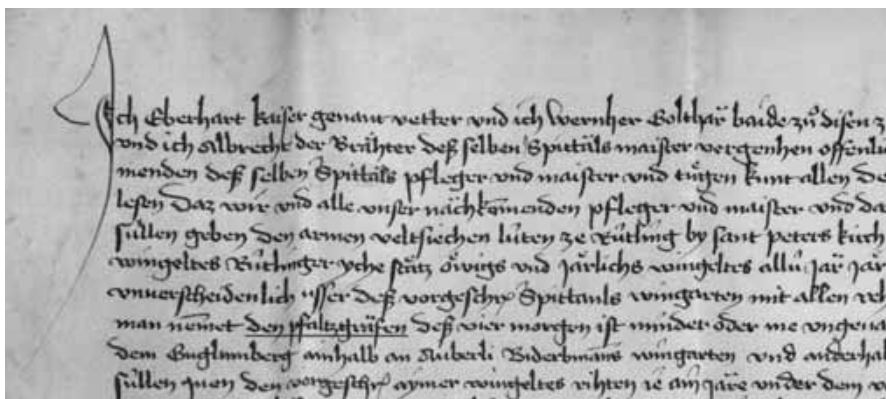 Ich Eberhart kaiser genant vetter vnd ich wernher Golthar̈ baide zů disen z
vnd ich Albrecht der Brähter deß selben Spittäls maister vergenhen offenlic
menden deß selben Spittäls pfleger vnd maister vnd tůgen kunt allen de
lesen Daz wir vnd alle vnser nächkōmenden pfleger vnd maister vnd da
süllen geben den armen veltsiechen lüten ze Rütling by sant peters kirch
wingeltes Rütlinger yche stätz öwigs vnd järlichs wingeltes allü jar jär
vnuerscheidenlich vsser deß vorgeschr Spittauls wingarten mit allen reh
man nēmet den pfaltzgräfen deß vier morgen ist minder oder me vngena
dem ainhalb an Auberli Biderbmans wingarten vnd anderhal
süllen jnen den vorgeschr aymer wingeltes rihten ie ain järe vnder dem